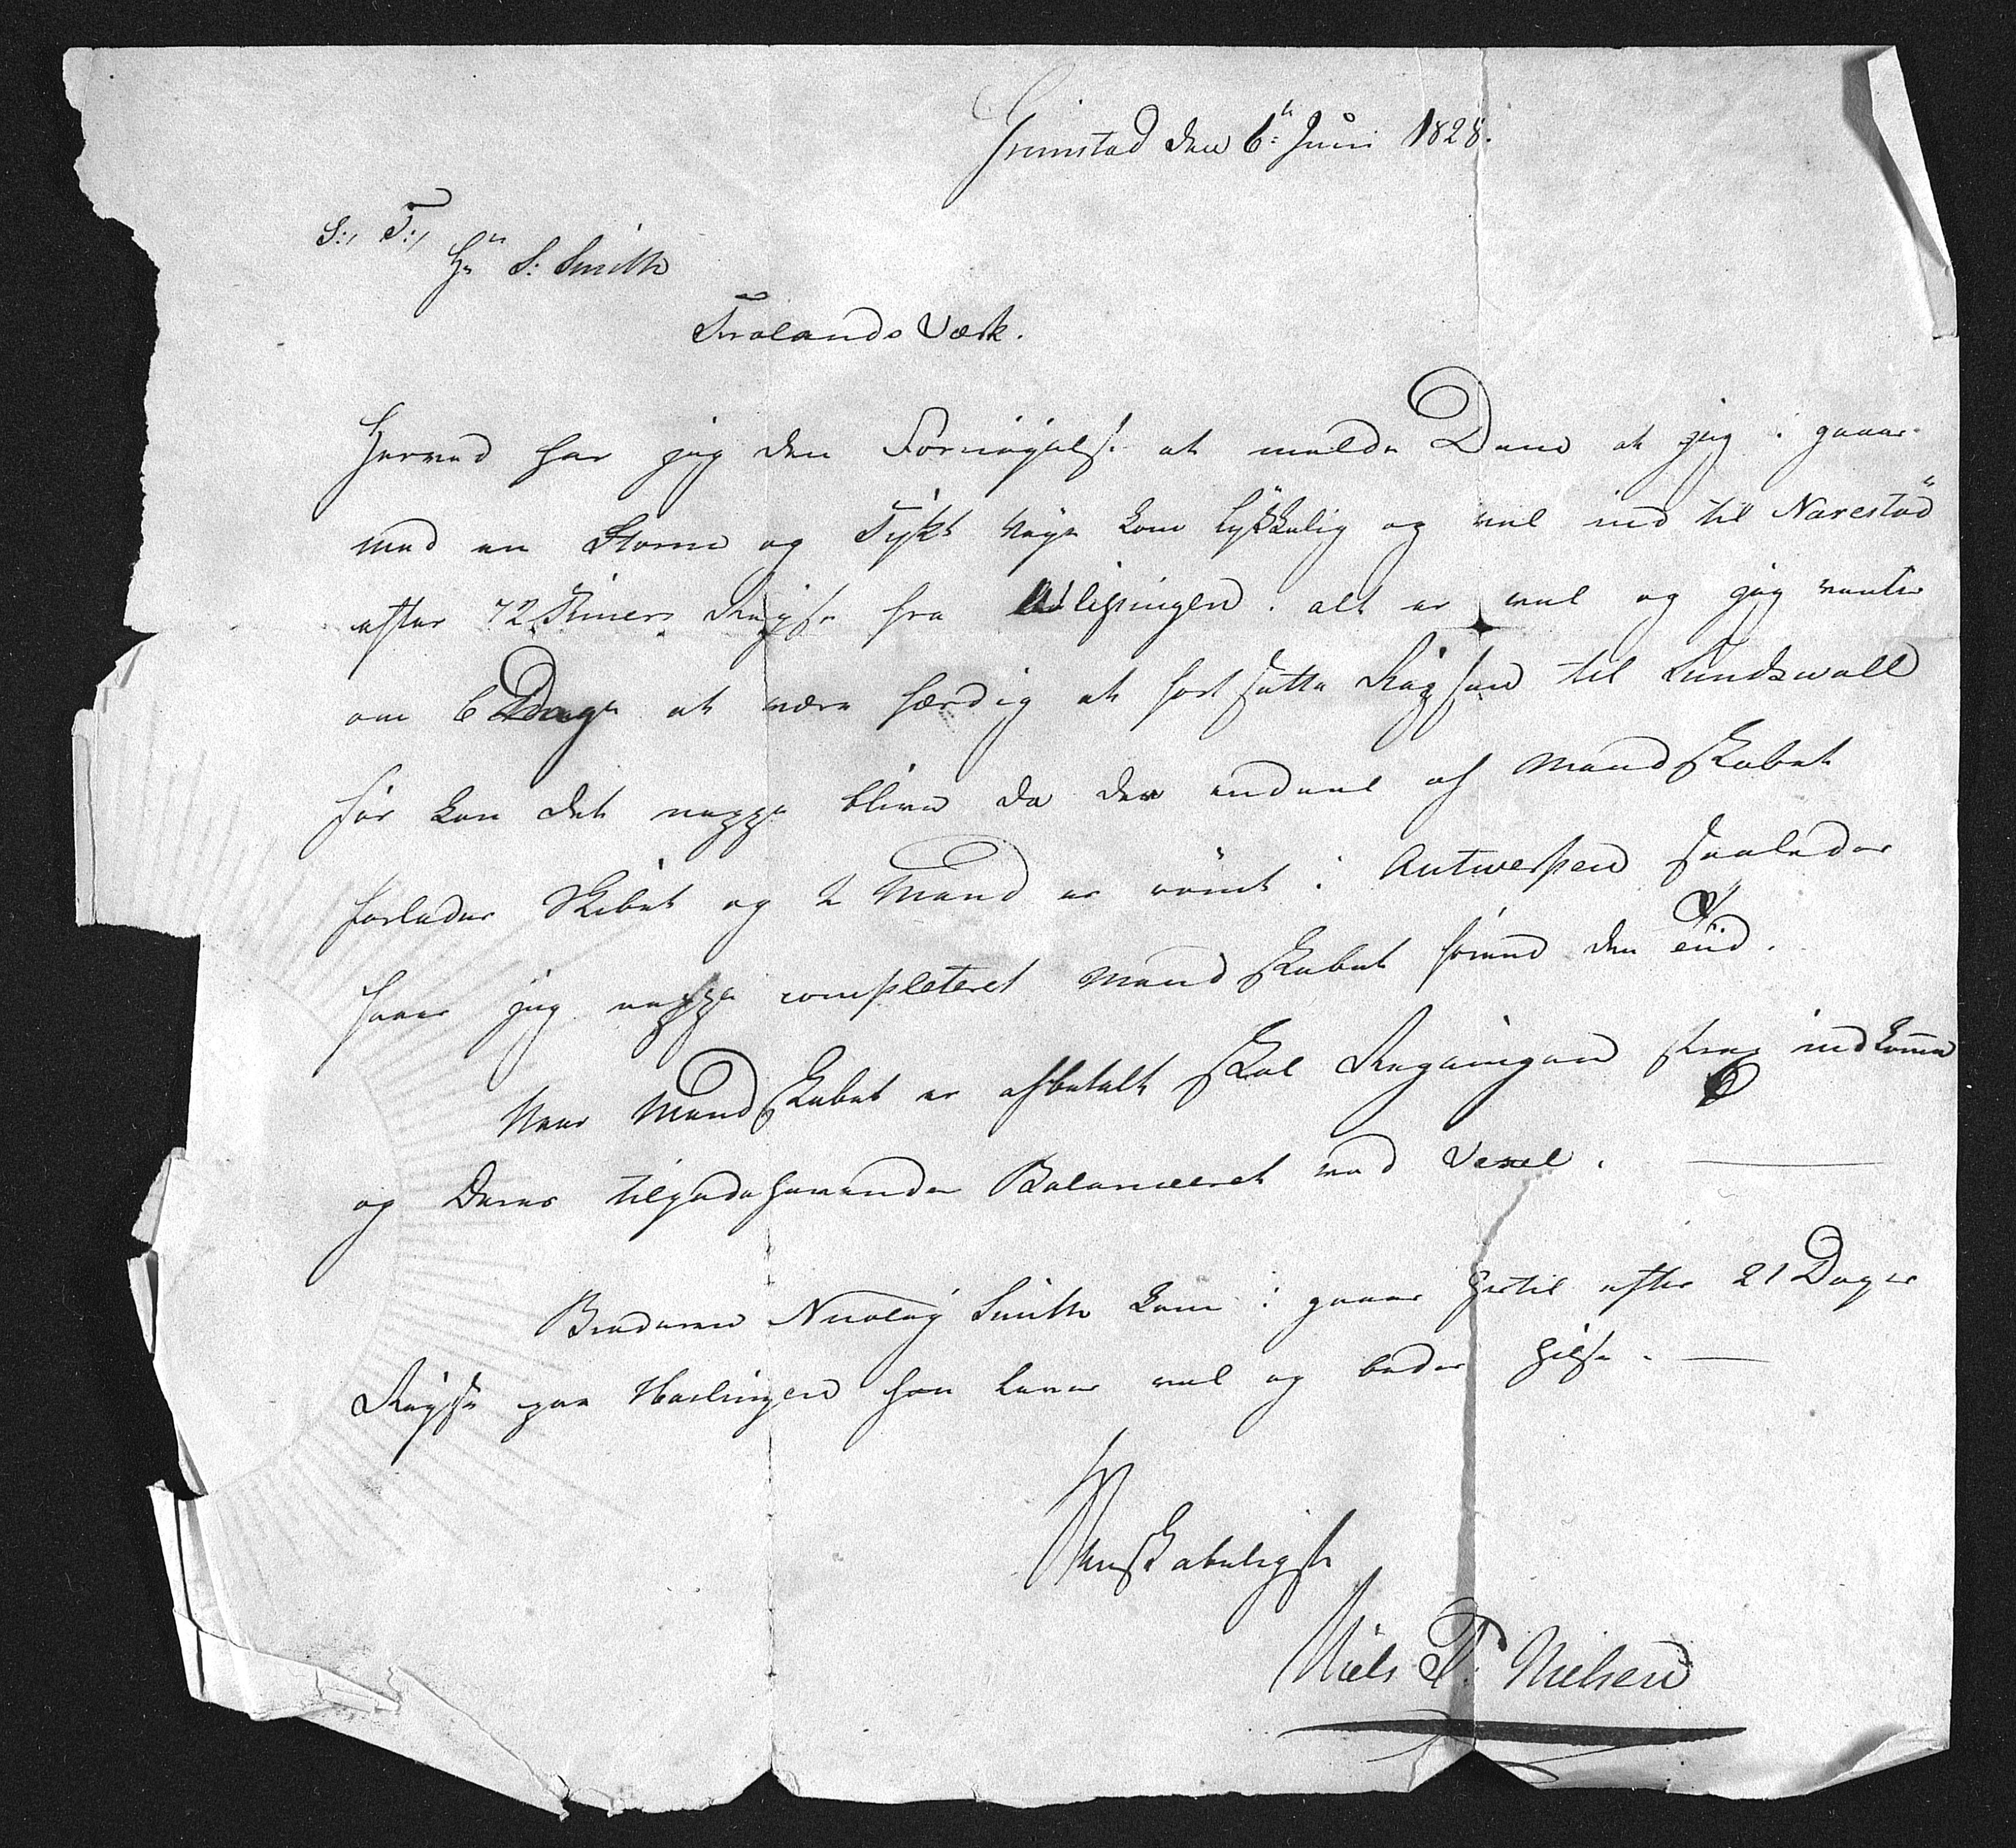 Grimstad den 6te Juni 1828.
S:/ T:/
Hr S: Smith
Frolands Værk.
Herved har jeg den Fornøyelse at melde Dem at jeg i gaaer
med en Storm og Tykt Veyr kom lykkelig og vel ind til Narestöd
efter 72 Timers Reyse fra Vlissingen. alt er vel og jeg venter
om 6 Dage at være færdig at fortsætte Reysen til Sundswall
før kan det neppe blive da der endeel af Mandskabet
forlader Skibet og 2 Mand er römt i Antwerpen saaledes
faaer jeg neppe completeret Mandskabet förend den Tiid.
Naar Mandskabet er afbetalt skal Regningen strax indkomme
og Deres tilgodehavende Balanceret med Vexel.
Broderen Nicolay Smith kom i gaaer hertil efter 21 Dages
Reyse fra Harlingen han lever vel og beder hilse.
Venskabeligst
Niels T. Nielsen